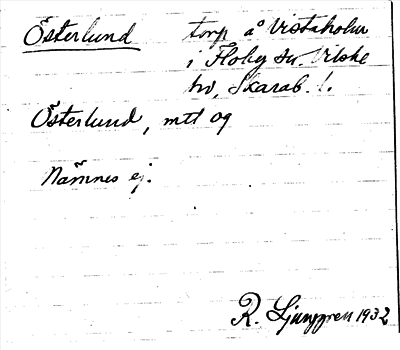 Österlund torp å Vistaholm
i Floby sn. Vilske
hd, Skarab. l.
Österlund, mtl og
Nämnes ej.
R. Ljunggren 1932